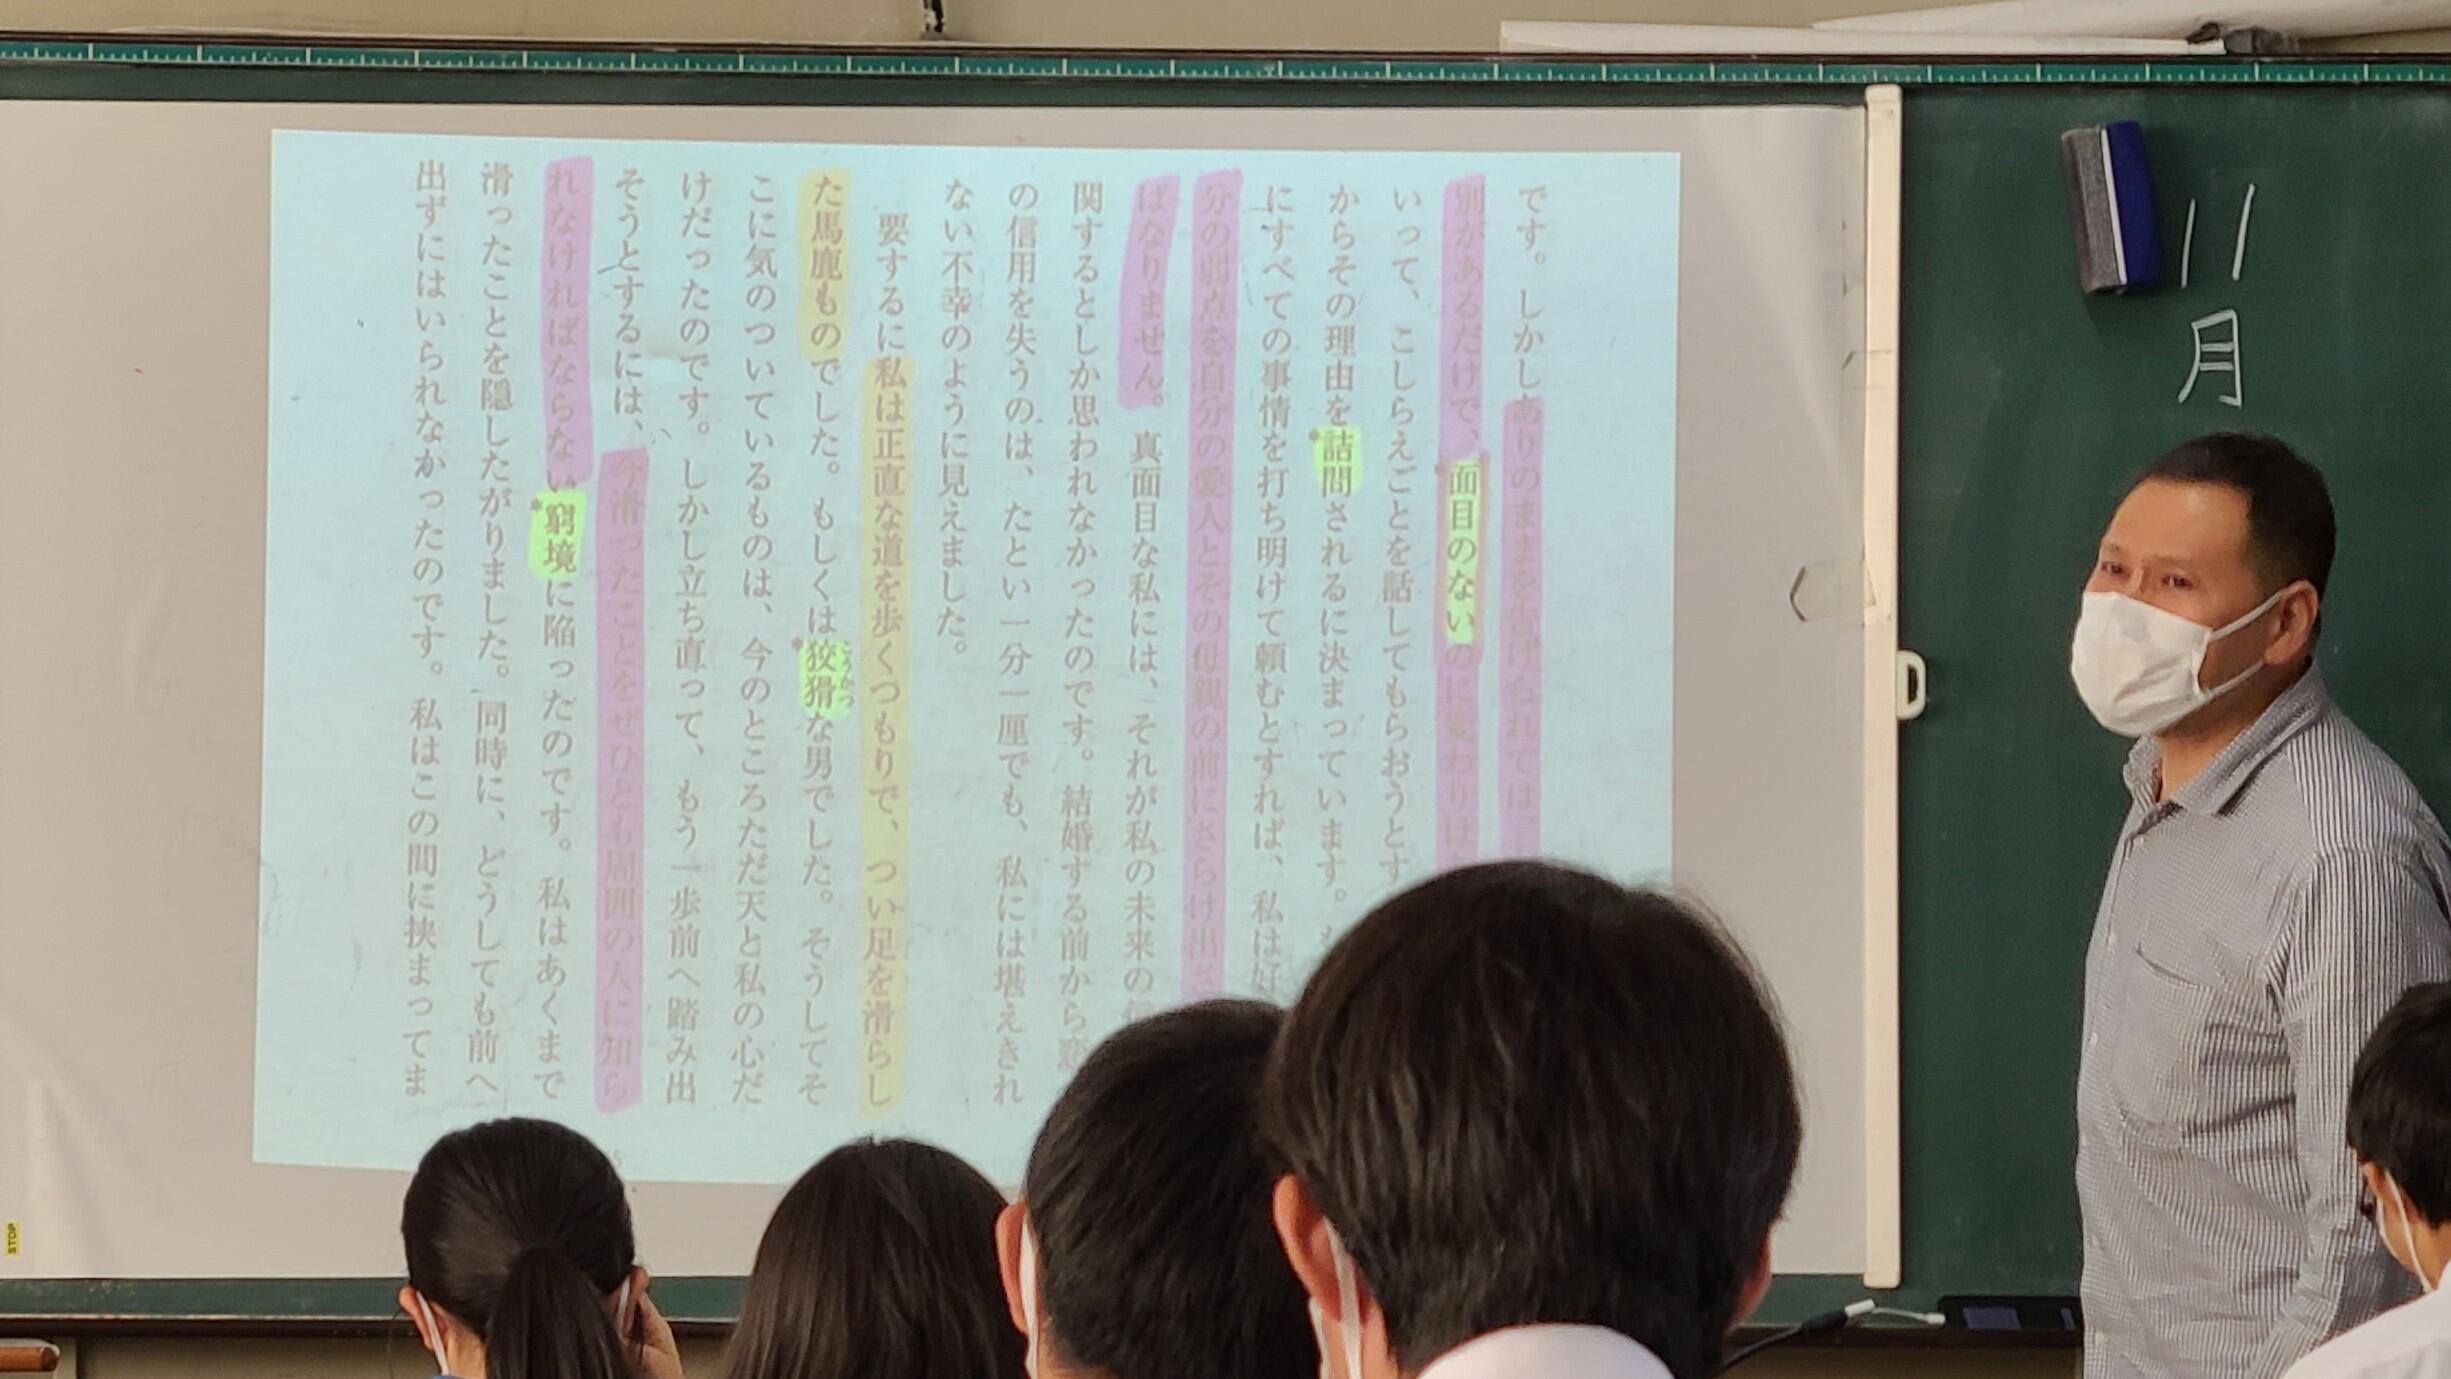 です。しかしありのままを告げられては、
別があるだけで、*面目のないのに変わりは
いって、こしらえごとを話してもらおうとす
からその理由を*詰問されるに決まっています。
にすべての事情を打ち明けて頼むとすれば、私は好
分の弱点を自分の愛人とその母親の前にさらけ出さ
ばなりません。真面目な私には、それが私の未来の
関するとしか思われなかったのです。結婚する前から恋
の信用を失うのは、たとい一分一厘でも、私には堪えきれ
ない不幸のように見えました。
要するに私は正直な道を歩くつもりで、つい足を滑らし
た馬鹿ものでした。もしくは*狡猾な男でした。そうしてそ
こうかつ
こに気のついているものは、今のところただ天と私の心だ
けだったのです。しかし立ち直って、もう一歩前へ踏み出
そうとするには、今滑ったことをぜひとも周囲の人に知ら
れなければならない*窮境に陥ったのです。私はあくまで
滑ったことを隠したがりました。同時に、どうしても前へ
出ずにはいられなかったのです。私はこの間に挟まってま
11月
STOP